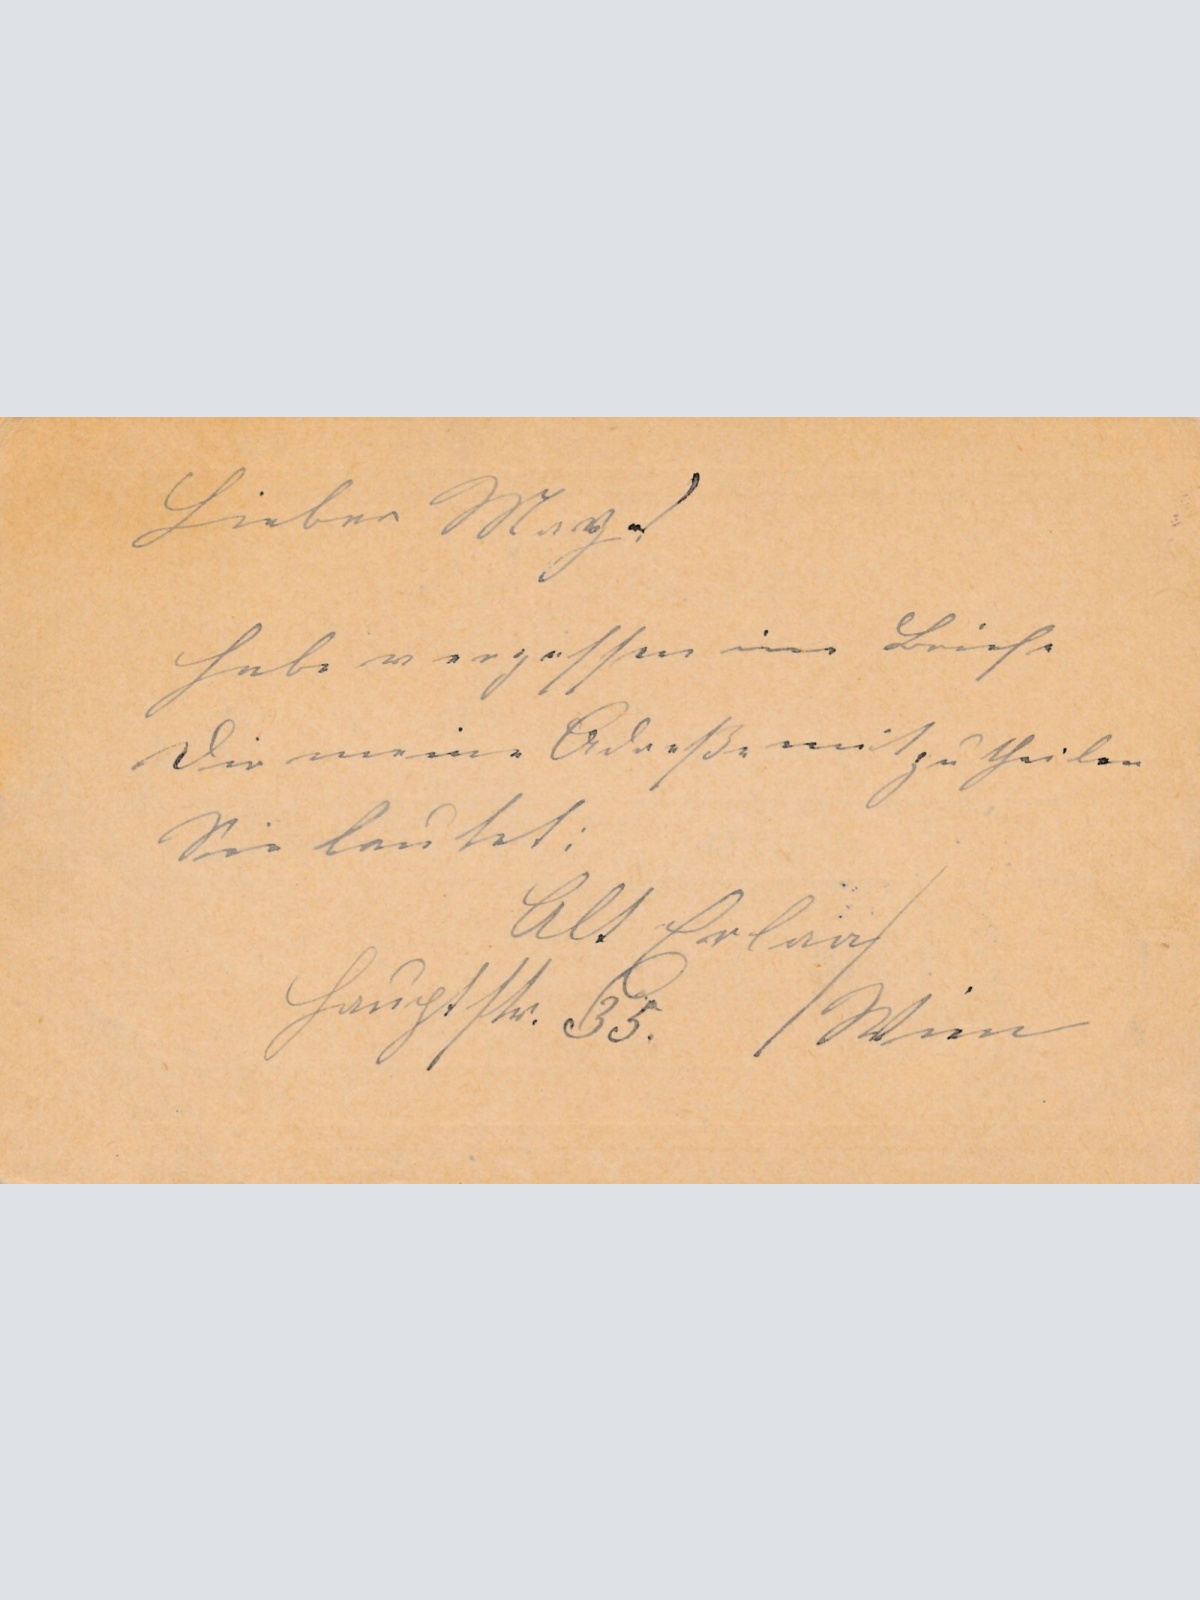 Lieber Max!
habe vergessen im Briefe
Dir meine Adreße mitzutheilen
Sie lautet:
Alt Erlaa /
Hauptstr. 35. / Wien